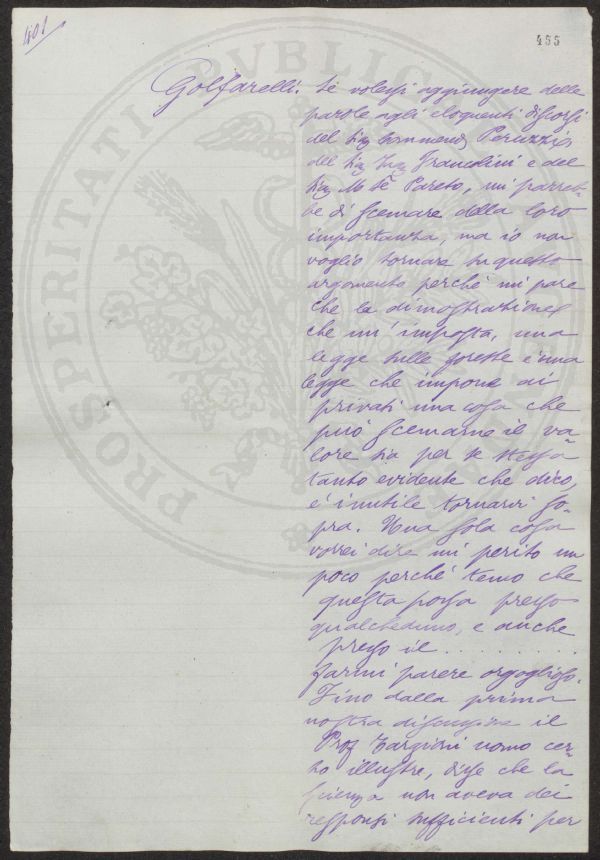 401
455
Golfarelli. Se volessi aggiungere delle
parole agli eloquenti discorsi
del Sig Commend Peruzzi,
del Sig Ing Francolini e del
Sig M.se Pareto, mi parreb-
be di scemare della loro
importanza, ma io non
voglio tornare su questo
argomento perché mi pare
che la dimostrazione
che un'imposta, una
legge sulle foreste è una
legge che impone ai
privati una cosa che
può scemarne il va-
lore sia per se stessa
tanto evidente che dico,
è inutile tornarvi so-
pra. Una sola cosa
vorrei dire mi perito un
poco perché temo che
questa possa presso
qualcheduno, e anche
presso il . . . . . . . . .
farmi parere orgoglioso.
Fino dalla prima
nostra discussione il
Prof Targioni uomo cer-
to illustre, disse che la
scienza non aveva dei
responsi sufficienti per
PROSPERITATI PUBLICAE